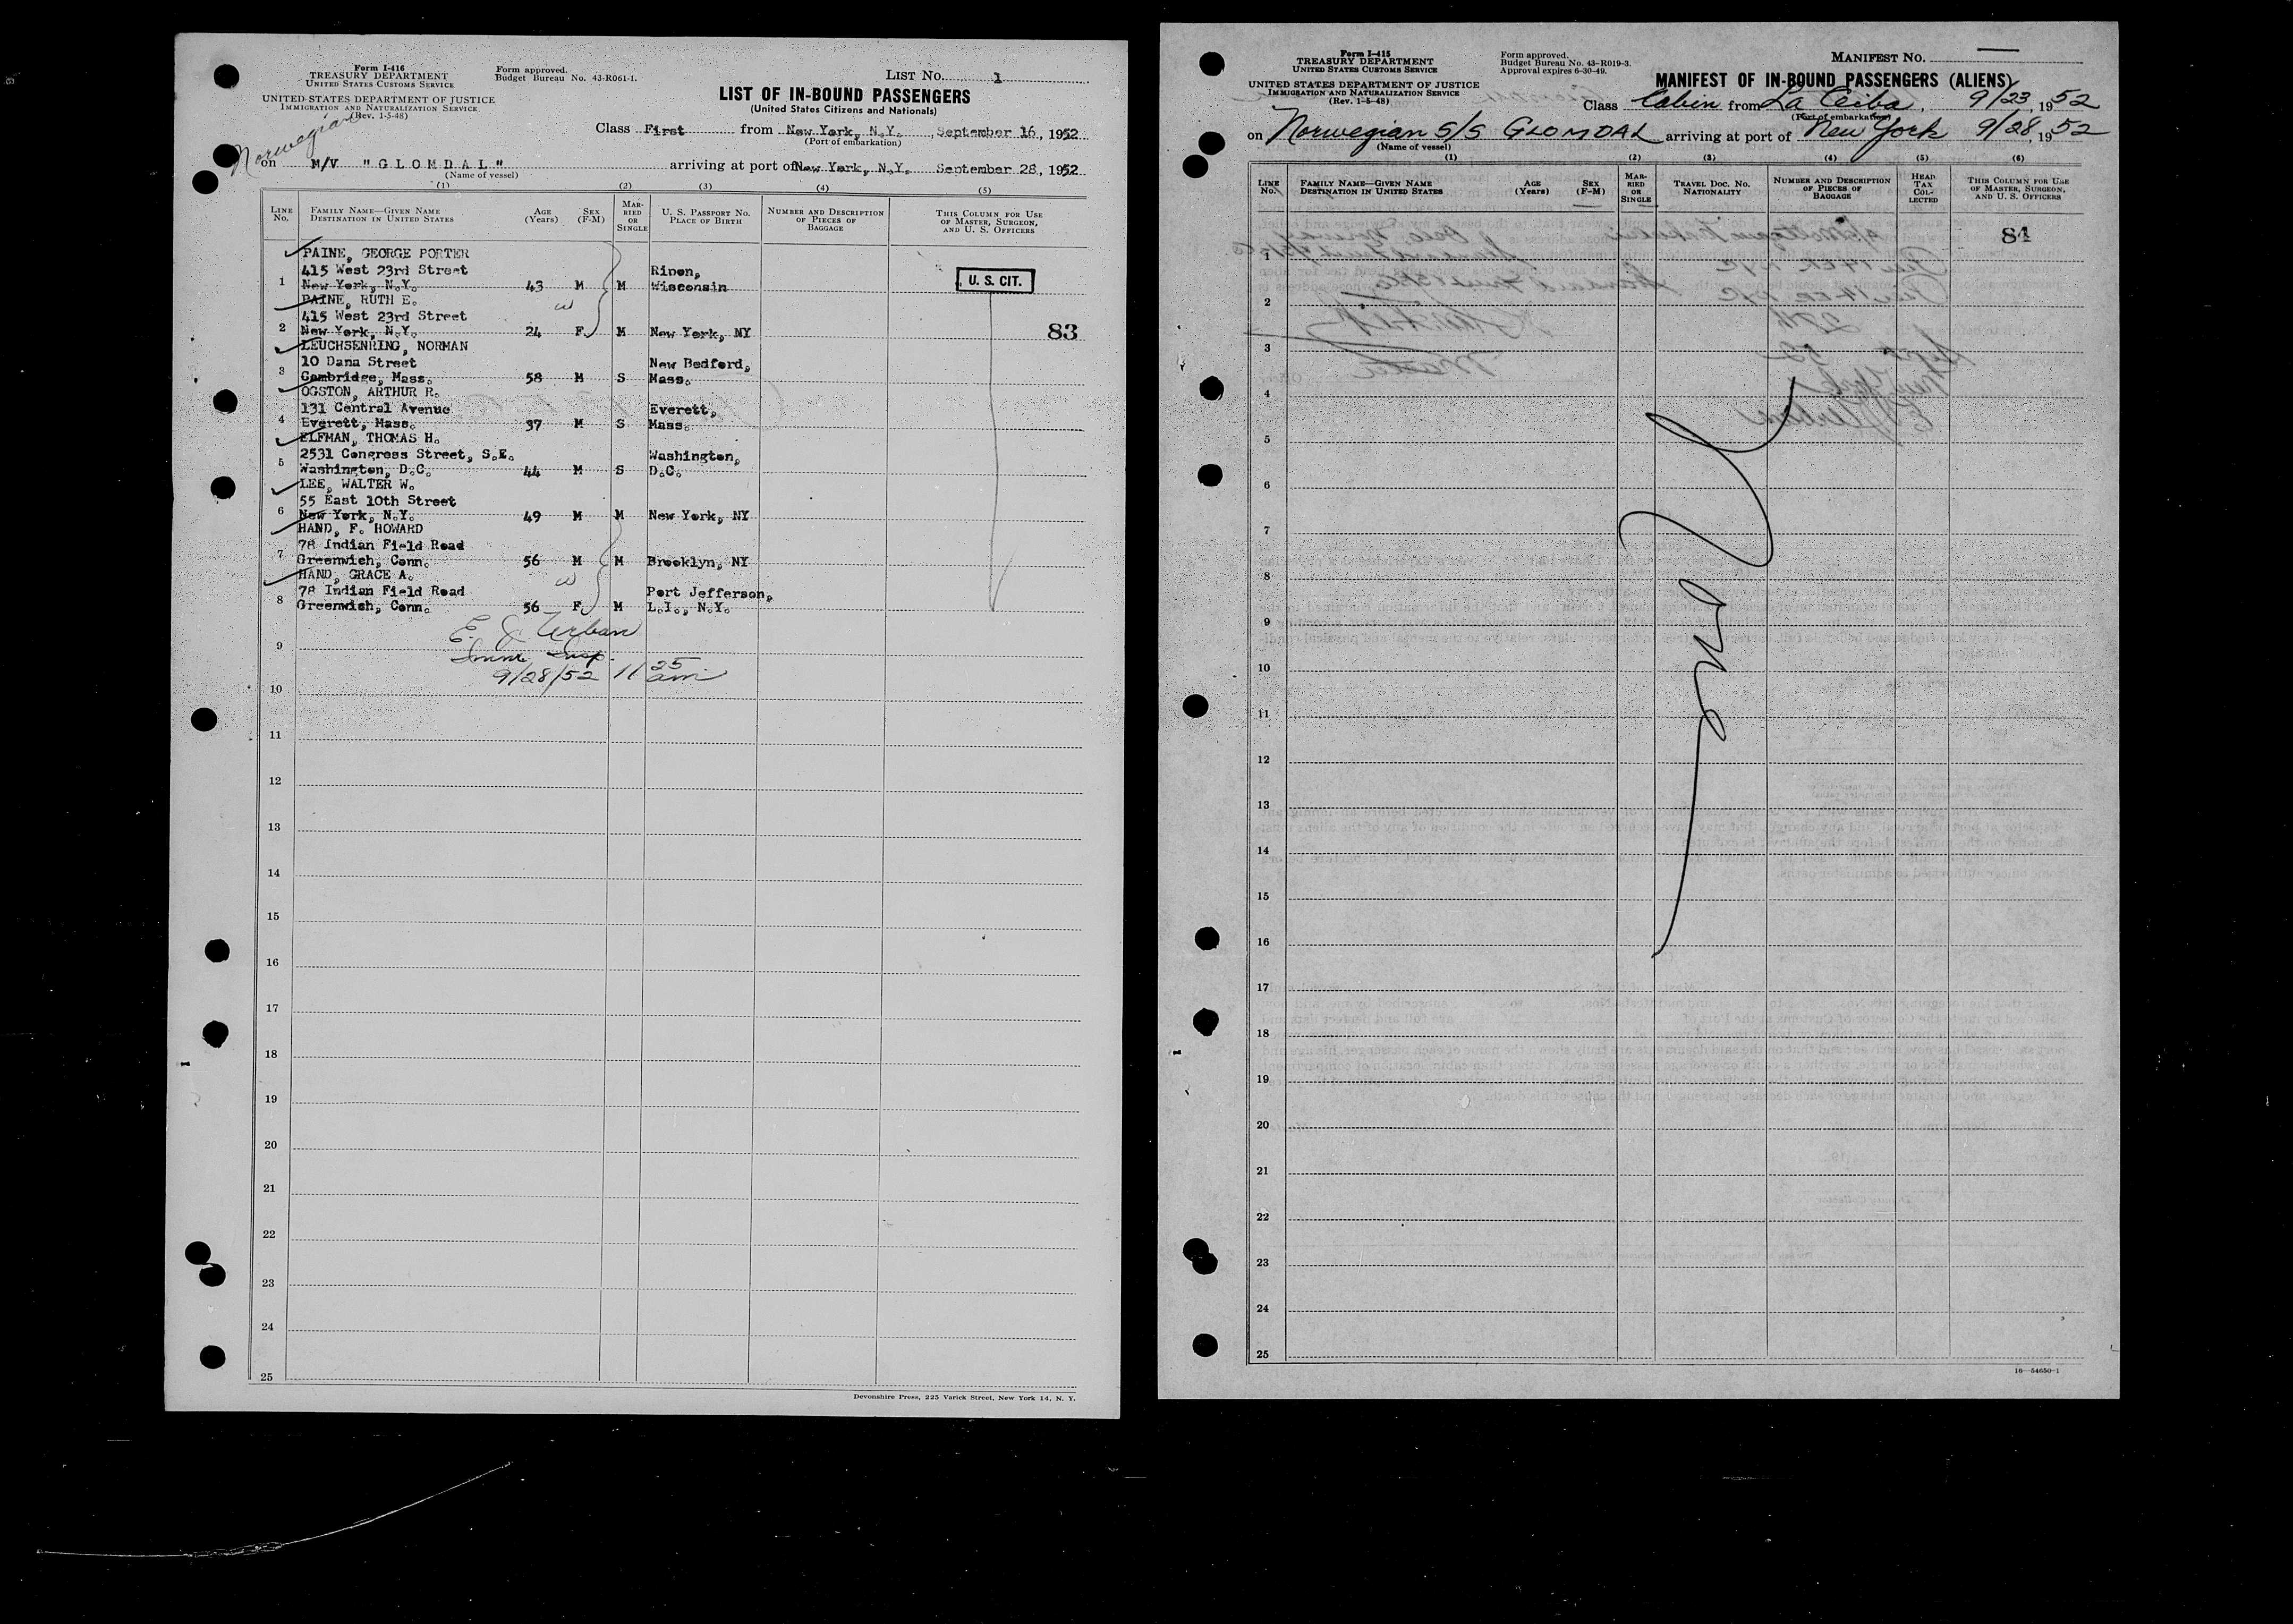 Form I-416
TREASURY DEPARTMENT
UNITED STATES CUSTOMS SERVICE
UNITED STATES DEPARTMENT OF JUSTICE
IMMIGRATION AND NATURALIZATION SERVICE
(Rev. 1-5-48)
Form approved.
Budget Bureau No. 43-R061-1.
LIST No. 1
LIST OF IN-BOUND PASSENGERS
(United States Citizens and Nationals)
Class First from New York, N.Y., September 16, 1952
(Port of embarkation)
Norwegian
on M/V "GLOMDAL" arriving at port of New York, N.Y. September 28, 1952
(Name of vessel)
(1) (2) (3) (4) (5)
LINE No. FAMILY NAME—GIVEN NAME DESTINATION IN UNITED STATES AGE (Years) SEX (F-M) MARRIED OR SINGLE U. S. PASSPORT NO. PLACE OF BIRTH NUMBER AND DESCRIPTION OF PIECES OF BAGGAGE THIS COLUMN FOR USE OF MASTER, SURGEON, AND U. S. OFFICERS
PAINE, GEORGE PORTER
415 West 23rd Street Ripon,
1 New York, N.Y. 43 M M Wisconsin U. S. CIT.
PAINE, RUTH E.
415 West 23rd Street
2 New York, N.Y. 24 F M New York, NY 83
LEUCHSENRING, NORMAN
10 Dana Street New Bedford,
3 Cambridge, Mass. 58 M S Mass.
OGSTON, ARTHUR R.
131 Central Avenue Everett,
4 Everett, Mass. 37 M S Mass.
ELFMAN, THOMAS H.
2531 Congress Street, S.E. Washington,
5 Washington, D.C. 44 M S D.C.
LEE, WALTER W.
55 East 10th Street
6 New York, N.Y. 49 M M New York, NY
HAND, F. HOWARD
78 Indian Field Road
7 Greenwich, Conn. 56 M M Brooklyn, NY
HAND, GRACE A.
78 Indian Field Road Port Jefferson,
8 Greenwich, Conn. 56 F M L.I., N.Y.
E. J. Urban
9 Imm. Insp.
9/28/52 11 25 am
10
11
12
13
14
15
16
17
18
19
20
21
22
23
24
25
Devonshire Press, 225 Varick Street, New York 14, N. Y.
Form I-415
TREASURY DEPARTMENT
UNITED STATES CUSTOMS SERVICE
UNITED STATES DEPARTMENT OF JUSTICE
IMMIGRATION AND NATURALIZATION SERVICE
(Rev. 1-5-48)
Form approved.
Budget Bureau No. 43-R019-3.
Approval expires 6-30-49.
MANIFEST NO.
MANIFEST OF IN-BOUND PASSENGERS (ALIENS)
Class Cabin from La Ceiba, 9/23, 1952
(Port of embarkation)
on Norwegian S/S GLOMDAL arriving at port of New York 9/28, 1952
(Name of vessel)
(1) (2) (3) (4) (5) (6)
LINE No. FAMILY NAME—GIVEN NAME DESTINATION IN UNITED STATES AGE (Years) SEX (F-M) MARRIED OR SINGLE TRAVEL DOC. NO. NATIONALITY NUMBER AND DESCRIPTION OF PIECES OF BAGGAGE HEAD TAX COLLECTED THIS COLUMN FOR USE OF MASTER, SURGEON, AND U. S. OFFICERS
84
1
2
3
4
5
6
7
8
9
10
11
12
13
14
15
16
17
18
19
20
21
22
23
24
25
16—54650-1